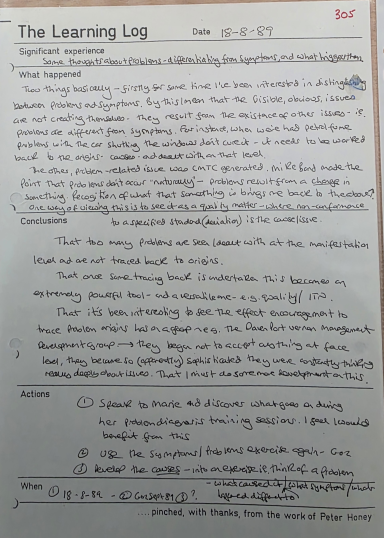 305
The Learning Log Date 18-8-89
Significant experience
Some thoughts about problems - differentiating from symptoms, and what triggers them
What happened
Two things basically - firstly for some time I've been interested in distinguishing
between problems and symptoms. By this I mean that the visible, obvious, issues
are not creating themselves. They result from the existence of other issues - ie.
problems are different from symptoms. For instance, when we've had petrol fume
problems with the car shutting the windows don't cure it - it needs to be worked
back to the origins - causes - and dealt with on that level.
The other, problem-related issue was CMTC generated. Mike Bond made the
point that problems don't occur "naturally" - problems result from a change in
something. Recognition of what that something is brings me back to the above
One way of viewing this is to see it as a quality matter - where non-conformance
Conclusions to a specified standard (deviation) is the cause/issue.
That too many problems are seen / dealt with at the manifestation
level and are not traced back to origins.
That once some tracing back is undertaken this becomes an
extremely powerful tool - and a versatile one - e.g. quality /
That it's been interesting to see the effect encouragement to
trace problem origins has on a group - e.g. The Davenport Vernon management
development group → they began not to accept anything at face
level, they became so (apparently) sophisticated they were constantly thinking
really deeply about issues. That I must do some more development on this.
Actions
① Speak to Marie and discover what goes on during
her problem diagnosis training sessions. I feel I would
benefit from this
② Use the symptoms/problems exercise again -
③ Develop the causes - into an exercise ie, think of a problem
- what caused it / what symptoms / what
happened differently
When ① 18-8-89 - ② Sept 89 ③ ?
....pinched, with thanks, from the work of Peter Honey